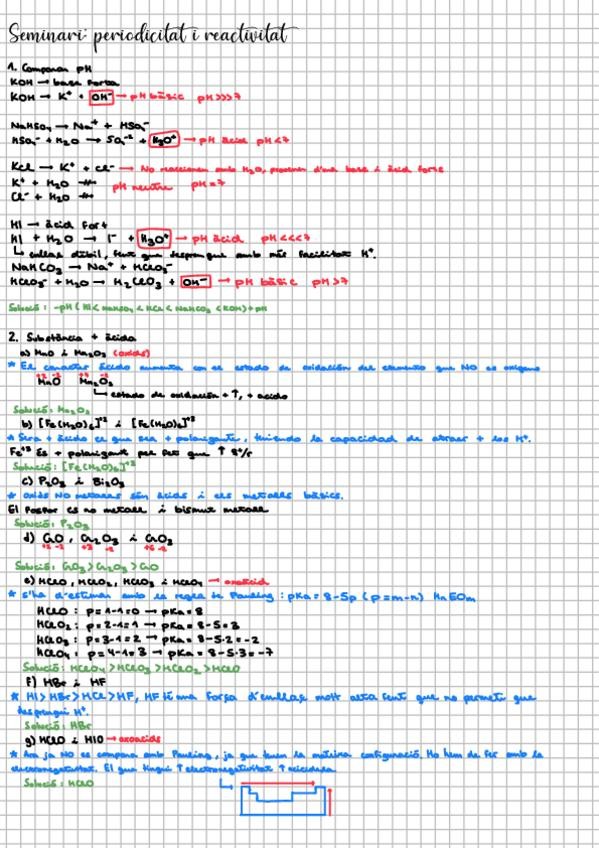 Seminari: periodicitat i reactivitat
1. Comparar pH
KOH → base forta
KOH → K⁺ + OH⁻ → pH bàsic pH>>>7
NaHSO₄ → Na⁺ + HSO₄⁻
HSO₄⁻ + H₂O → SO₄⁻² + H₃O⁺ → pH àcid pH<7
KCl → K⁺ + Cl⁻ → No reaccionen amb H₂O, provenen d'una base i àcid forts
K⁺ + H₂O
pH neutre pH=7
Cl⁻ + H₂O
HI → àcid fort
HI + H₂O → I⁻ + H₃O⁺ → pH àcid pH<<<7
enllaç dèbil, fent que desprengui amb més facilitat H⁺.
NaHCO₃ → Na⁺ + HCO₃⁻
HCO₃⁻ + H₂O → H₂CO₃ + OH⁻ → pH bàsic pH>7
Solució: -pH (HI < NaHSO₄ < KCl < NaHCO₃ < KOH) + pH
2. Substància + àcida
a) MnO i Mn₂O₃ (oxids)
* El caracter ácido aumenta con el estado de oxidación del elemento que NO es oxígeno
+2 -2 +3 -2
MnO Mn₂O₃
estado de oxidación + ↑, + acido
Solució: Mn₂O₃
b) [Fe(H₂O)₆]⁺² i [Fe(H₂O)₆]⁺³
* Sera + ácido el que sea + polarizante, teniendo la capacidad de atraer + los H⁺.
Fe⁺³ és + polarizant pel fet que ↑ q/r
Solució: [Fe(H₂O)₆]⁺³
c) P₂O₃ i Bi₂O₃
* oxids NO metalls són àcids i els metalls bàsics.
El fosfor es no metall i bismut metall
Solució: P₂O₃
d) CrO, Cr₂O₃ i CrO₃
+2 -2 +3 -2 +6 -2
Solució: CrO₃ > Cr₂O₃ > CrO
e) HClO, HClO₂, HClO₃ i HClO₄ → oxoàcid
* s'ha d'estimar amb la regla de Pauling: pKa = 8-5p (p=m-n) HnEOm
HClO : p=1-1=0 → pKa=8
HClO₂ : p=2-1=1 → pKa=8-5=3
HClO₃ : p=3-1=2 → pKa=8-5·2=-2
HClO₄ : p=4-1=3 → pKa=8-5·3=-7
Solució: HClO₄ > HClO₃ > HClO₂ > HClO
f) HBr i HF
* HI > HBr > HCl > HF, HF té una força d'enllaç molt alta fent que no permeti que
desprengui H⁺.
Solució: HBr
g) HClO i HIO → oxoacids
* Ara ja NO es compara amb Pauling, ja que tenen la mateixa configuració. Ho hem de fer amb la
electronegativitat. El que tingui ↑ electronegativitat ↑ acidesa
Solució: HClO